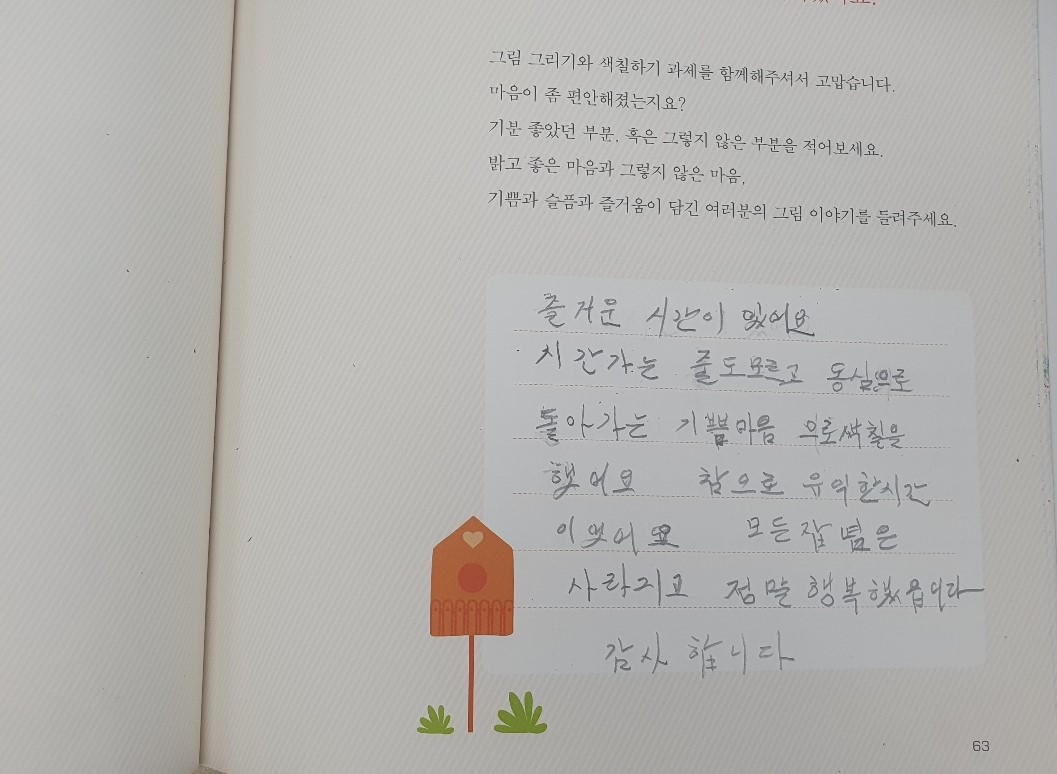 그림 그리기와 색칠하기 과제를 함께해주셔서 고맙습니다.
마음이 좀 편안해졌는지요?
기분 좋았던 부분, 혹은 그렇지 않은 부분을 적어보세요.
밝고 좋은 마음과 그렇지 않은 마음,
기쁨과 슬픔과 즐거움이 담긴 여러분의 그림 이야기를 들려주세요.
즐거운 시간이 있어요
시간가는 줄도모르고 동심으로
돌아가는 기쁨마음 으로색칠을
했어요 참으로 유익한시간
이었어요 모든잡념은
사라지고 정말 행복했읍니다
감사 합니다
63